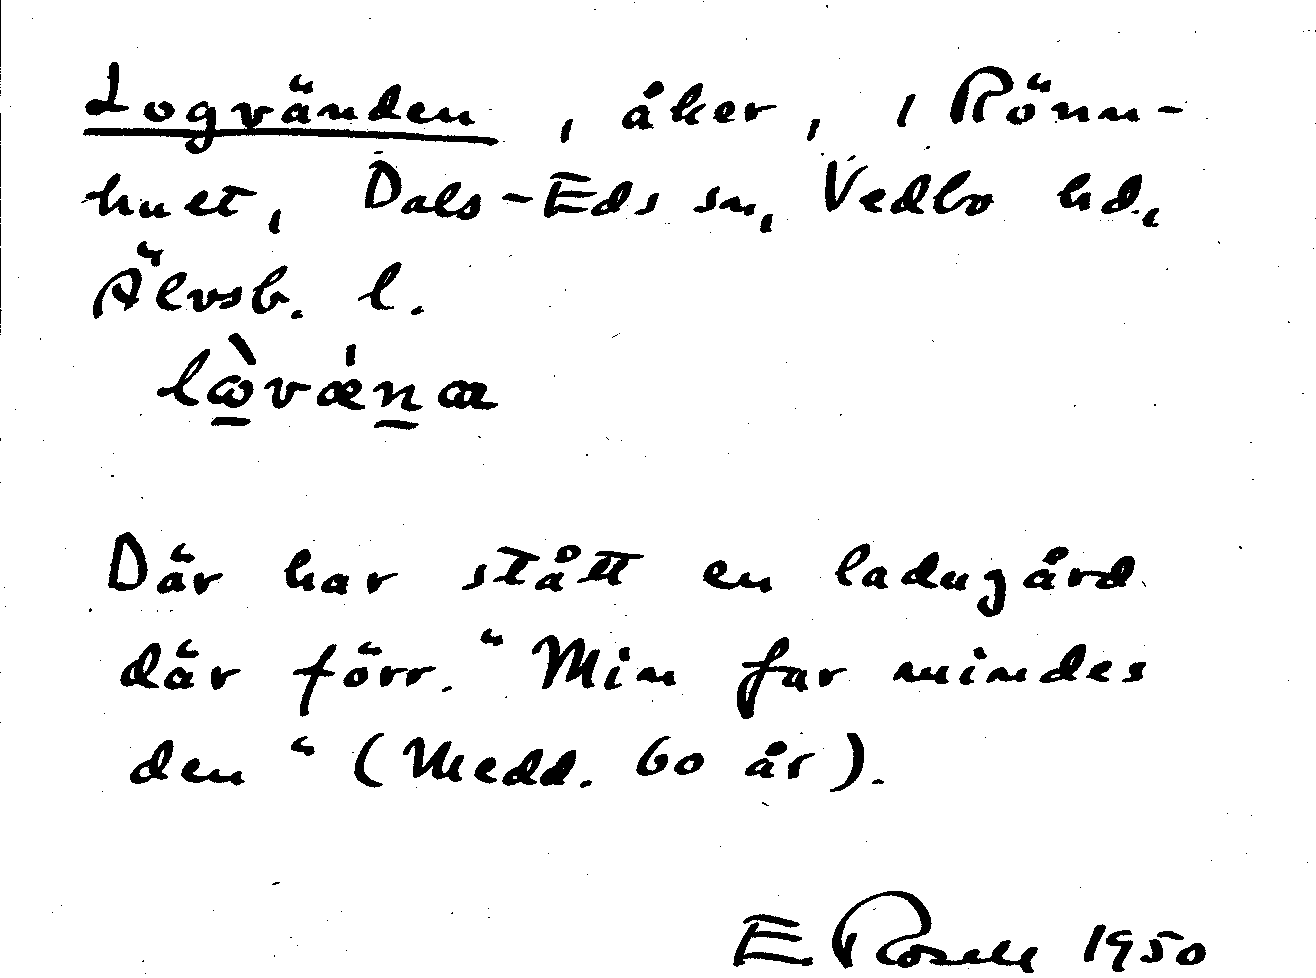 Logvänden, åker, i Rönn-
huet, Dals-Eds sn, Vedbo hd,
Älvsb. l.
Där har stått en ladugård
där förr. "Min far mindes
den" (Medd. 60 år).
E Rosell 1950